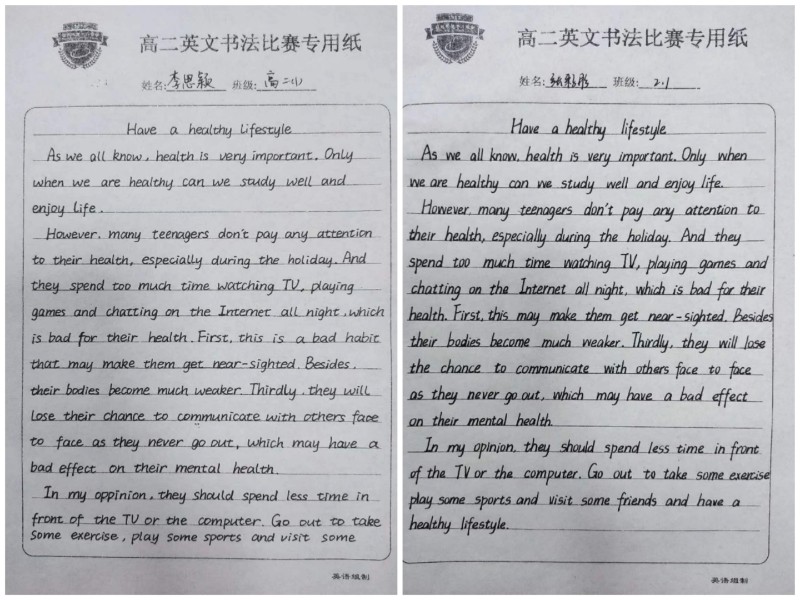 高二英文书法比赛专用纸
姓名: 李思颖 班级: 高二(1)
Have a healthy lifestyle
As we all know, health is very important. Only
when we are healthy can we study well and
enjoy life.
However, many teenagers don't pay any attention
to their health, especially during the holiday. And
they spend too much time watching TV, playing
games and chatting on the Internet all night, which
is bad for their health. First, this is a bad habit
that may make them get near-sighted. Besides,
their bodies become much weaker. Thirdly, they will
lose their chance to communicate with others face
to face as they never go out, which may have a
bad effect on their mental health.
In my oppinion, they should spend less time in
front of the TV or the computer. Go out to take
some exercise, play some sports and visit some
英语组制
高二英文书法比赛专用纸
姓名: 班级: 2.1
Have a healthy lifestyle
As we all know, health is very important. Only when
we are healthy can we study well and enjoy life.
However, many teenagers don't pay any attention to
their health, especially during the holiday. And they
spend too much time watching TV, playing games and
chatting on the Internet all night, which is bad for their
health. First, this may make them get near-sighted. Besides
their bodies become much weaker. Thirdly, they will lose
the chance to communicate with others face to face
as they never go out, which may have a bad effect
on their mental health.
In my opinion, they should spend less time in front
of the TV or the computer. Go out to take some exercise
play some sports and visit some friends and have a
healthy lifestyle.
英语组制